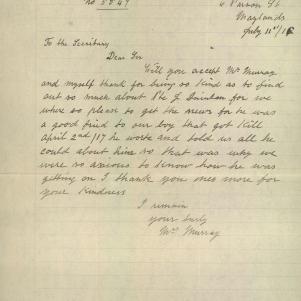 no 5847
Parson St
Maylands
July 11th/18
To the Secritary
Dear Sir
Will you accept Mr Murray
and myself thank for being so kind as to find
out so much about Pte J for we
where so please to get the news for he was
a good frind to our boy that got kill
April 2nd/17 he worte and told us all he
could about him so that was why we
were so anxious to know how he was
getting on I thank you ones more for
your kindness
I remain
your Surly
Mrs Murray